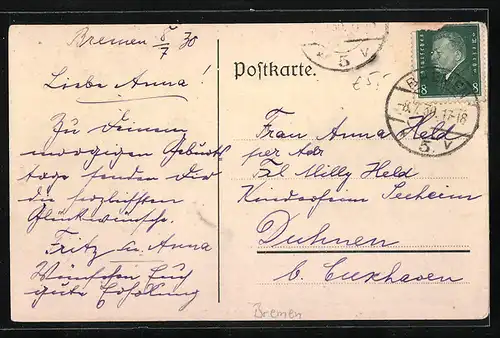 Bremen 8/7 30
Liebe Anna!
Zu Deinem
morgigen Geburts
tage senden Dir
die herzlichsten
Glückwünsche.
Fritz u. Anna
Wünschen Euch
gute Erholung
Postkarte.
5 V
Deutsches Reich
8 8
-8.7.30.17-18
5 V
Frau Anna Held
per Adr
Frl Milly Held
Kinderheim Seeheim
Duhnen
b. Cuxhaven
Bremen